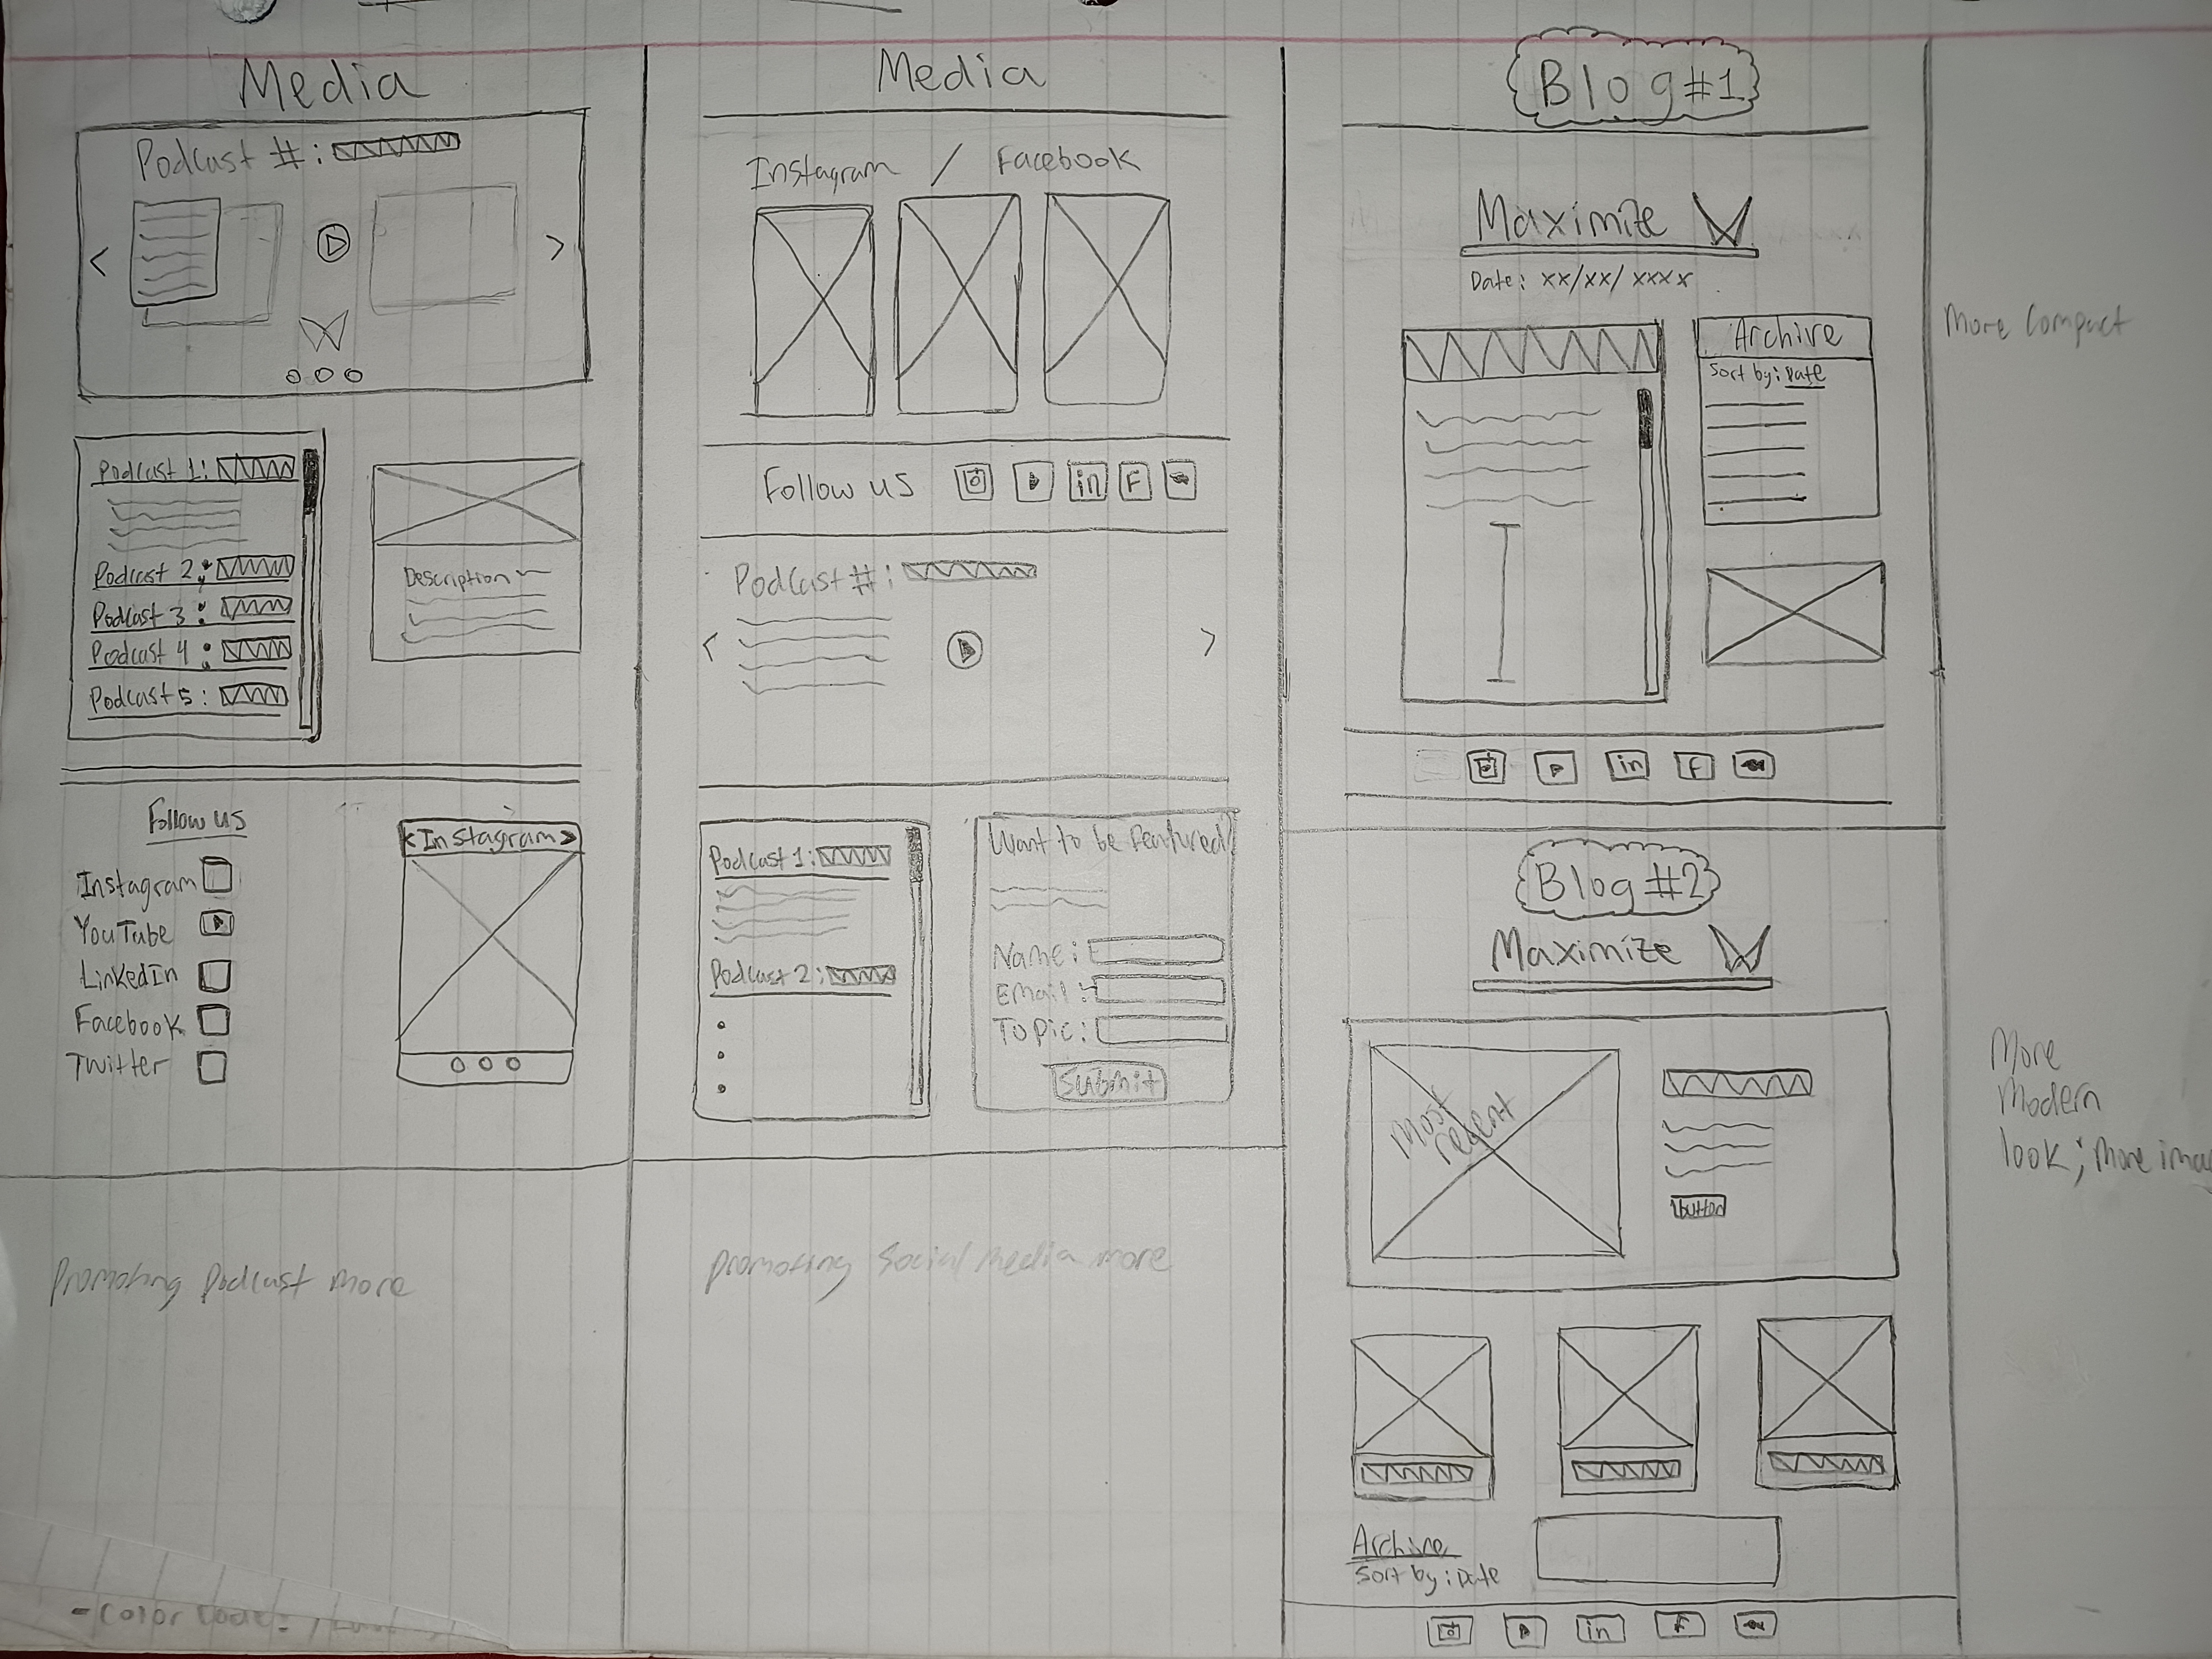 Media
Podcast #:
<
>
Podcast 1:
Podcast 2:
Podcast 3:
Podcast 4:
Podcast 5:
Description
Follow us
Instagram
YouTube
LinkedIn
Facebook
Twitter
<Instagram>
Promoting Podcast more
- Color Code:
Media
Instagram / Facebook
Follow us in F
Podcast #:
<
>
Podcast 1:
Podcast 2:
Want to be Featured?
Name:
Email:
Topic:
Submit
promoting Social Media more
Blog #1
Maximize
Date: xx/xx/xxxx
Archive
Sort by: Date
in F
More Compact
Blog #2
Maximize
Most
recent
button
Archive
Sort by: Date
in F
More
Modern
look; More